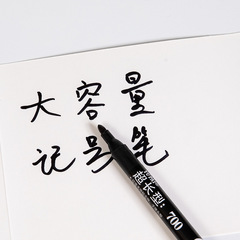 大容量
记号笔
超长型：700